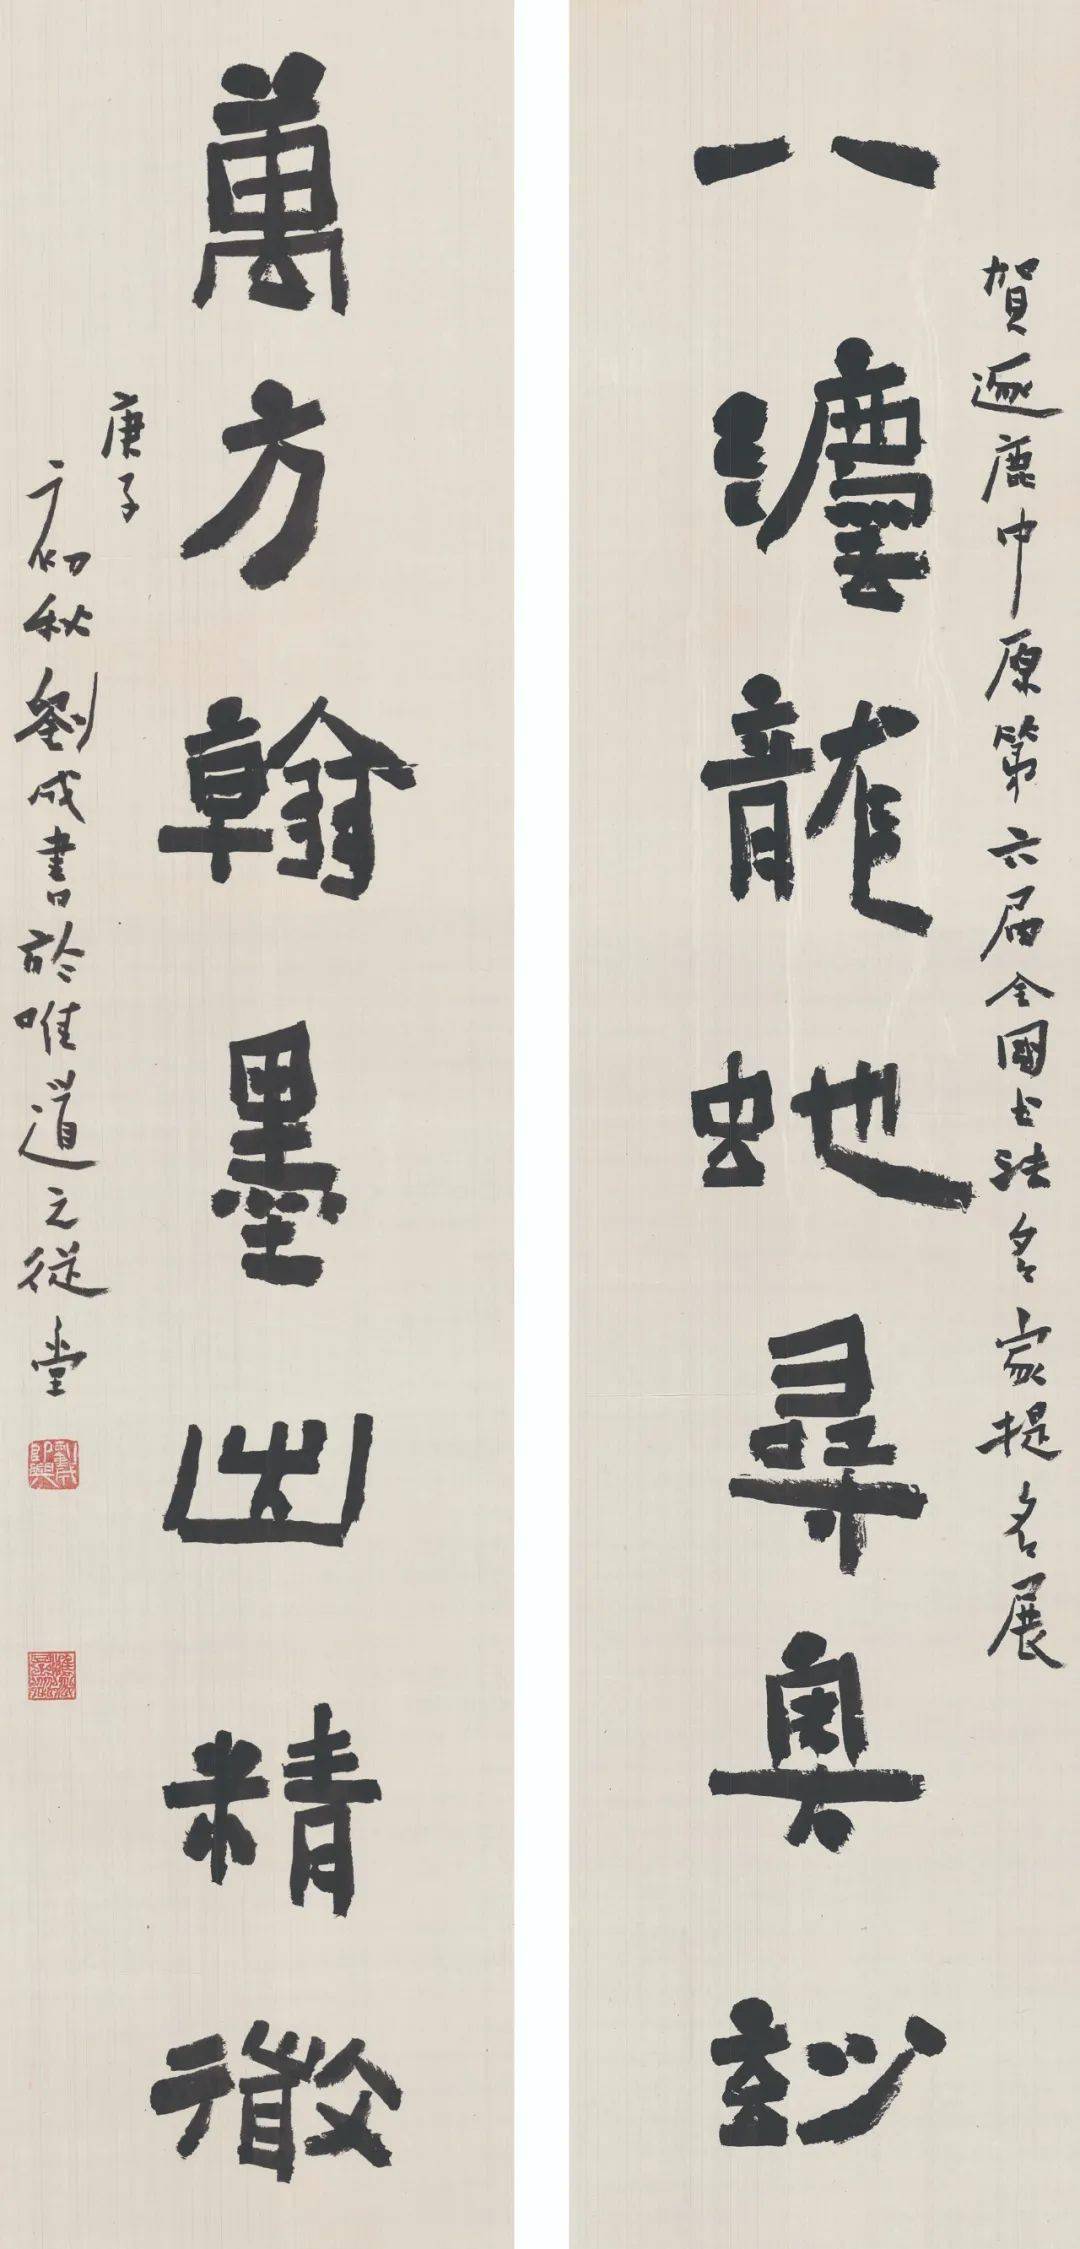 賀逐鹿中原第六届全國书法名家提名展
八灋龍蛇尋奧玅
萬方翰墨出精微
庚子
初秋劉成書於唯道之從堂